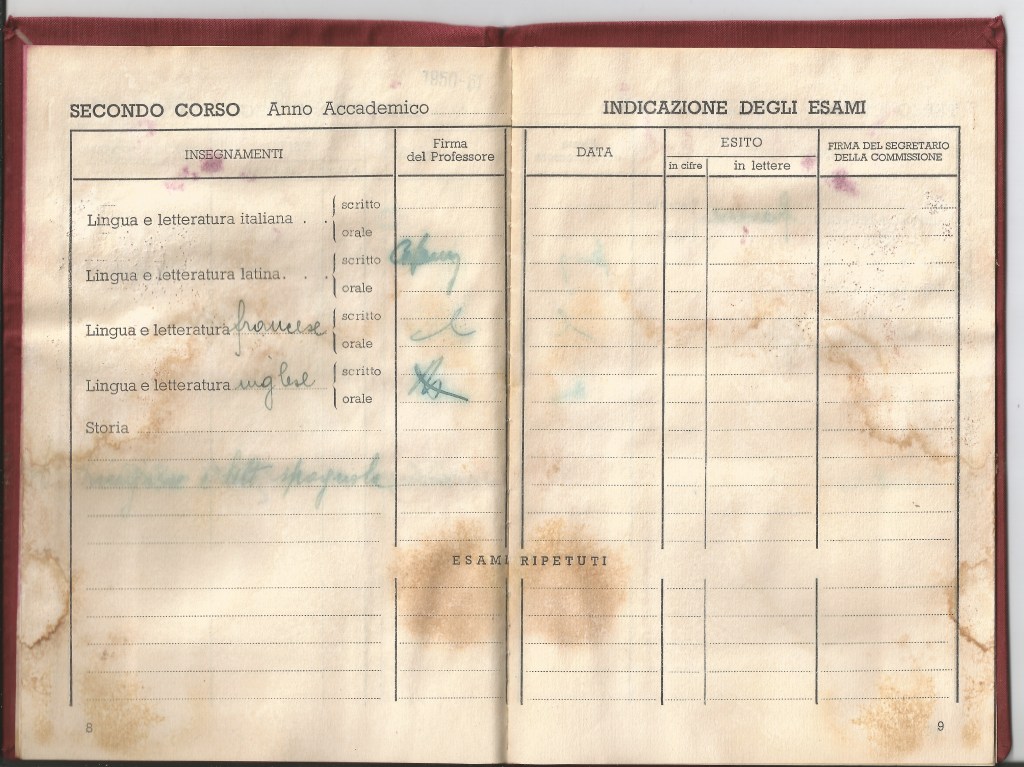 SECONDO CORSO Anno Accademico
INDICAZIONE DEGLI ESAMI
INSEGNAMENTI
Firma
del Professore
DATA
ESITO
in cifre
in lettere
FIRMA DEL SEGRETARIO
DELLA COMMISSIONE
Lingua e letteratura italiana . . scritto
orale
Lingua e letteratura latina. . . scritto
orale
Lingua e letteratura francese scritto
orale
Lingua e letteratura inglese scritto
orale
Storia
lett spagnola
ESAMI RIPETUTI
8
9